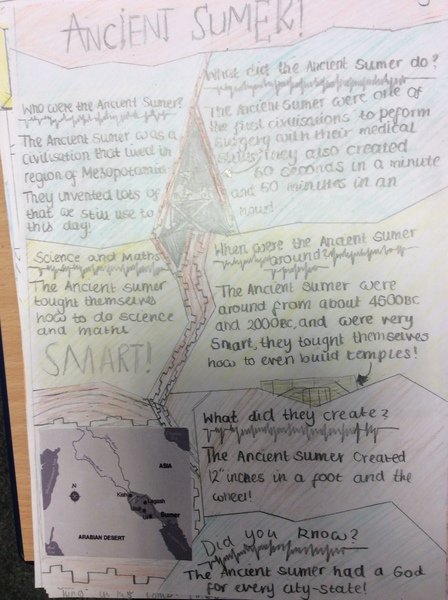 ANCIENT SUMER!
Who were the Ancient Sumer?
The Ancient Sumer was a
civilisation that lived in
region of Mesopotamia
They invented lots of
that we still use to
this day!
What did the Ancient Sumer do?
The Ancient Sumer were one of
the first civilisations to peform
surgery with their medical
skills, they also created
60 seconds in a minute
and 60 minutes in an
hour!
Science and Maths
The Ancient Sumer
tought themselves
how to do science
and maths
SMART!
When were the Ancient Sumer
around?
The Ancient Sumer were
around from about 4500BC
and 2000BC, and were very
Smart, they tought themselves
how to even build temples!
What did they create?
The Ancient Sumer Created
12" inches in a foot and the
wheel!
ASIA
N
Kish
Lagash
Ur
Sumer
ARABIAN DESERT
Did you know?
The Ancient Sumer had a God
for every city-state!